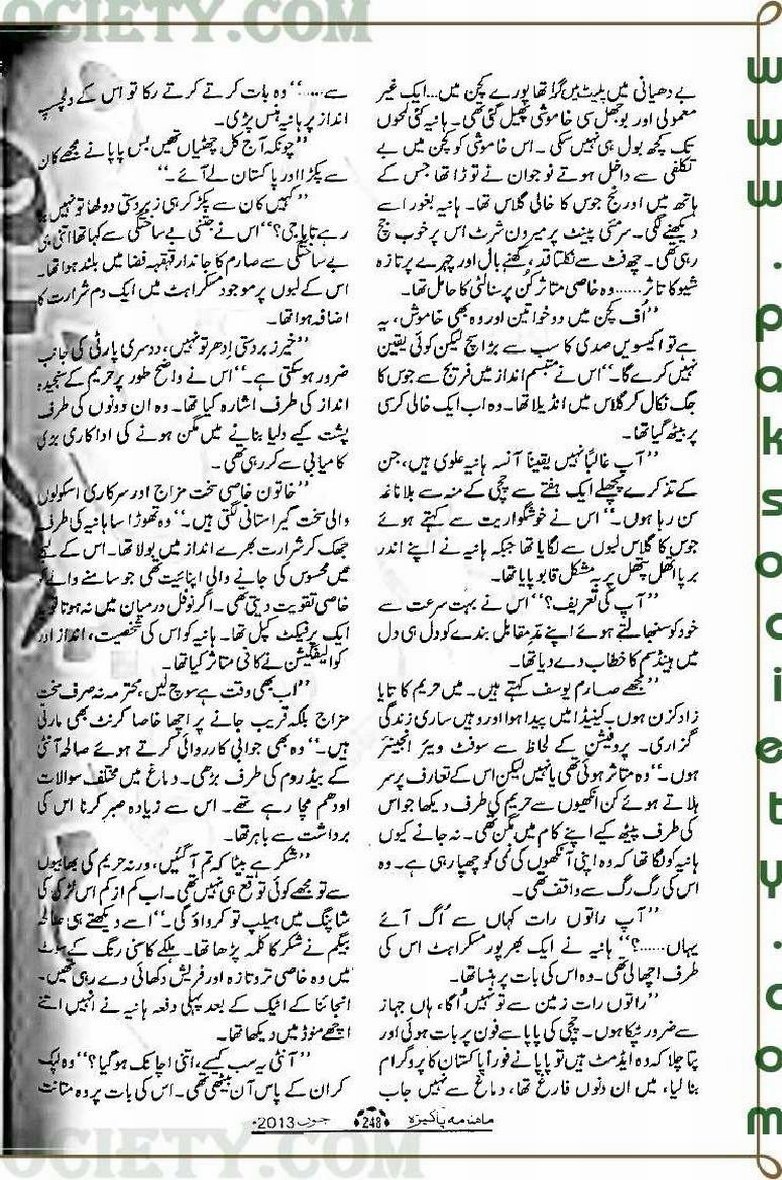 OCIETY.COM
بے دھیانی میں پلیٹ میں گرا تھا پورے کچن میں... ایک غیر
معمولی اور بوجھل سی خاموشی پھیل گئی تھی۔ ہانیہ کئی لمحوں
تک کچھ بول ہی نہیں سکی۔ اس خاموشی کو کچن میں بے
تکلفی سے داخل ہوتے نوجوان نے توڑا تھا جس کے
ہاتھ میں اورنج جوس کا خالی گلاس تھا۔ ہانیہ بغور اسے
دیکھنے لگی۔ سرمئی پینٹ پر میرون شرٹ اس پر خوب جچ
رہی تھی۔ چھ فٹ سے نکلتا قد، گھنے بال اور چہرے پر تازہ
شیو کا تاثر...... وہ خاصی متاثر کُن پرسنالٹی کا حامل تھا۔
”اُف کچن میں دو خواتین اور وہ بھی خاموش، یہ
ہے تو اکیسویں صدی کا سب سے بڑا سچ لیکن کوئی یقین
نہیں کرے گا۔“ اس نے متبسم انداز میں فریج سے جوس کا
جگ نکال کر گلاس میں انڈیلا تھا۔ وہ اب ایک خالی کرسی
پر بیٹھ گیا تھا۔
”آپ غالباً نہیں یقیناً آنسہ ہانیہ علوی ہیں، جن
کے تذکرے پچھلے ایک ہفتے سے چچی کے منہ سے بلاناغہ
سن رہا ہوں۔“ اس نے خوشگواریت سے کہتے ہوئے
جوس کا گلاس لبوں سے لگایا تھا جبکہ ہانیہ نے اپنے اندر
برپا اتھل پتھل پر بہ مشکل قابو پایا تھا۔
”آپ کی تعریف؟“ اس نے بہت سرعت سے
خود کو سنبھالتے ہوئے اپنے مدِ مقابل بندے کو دل ہی دل
میں ہینڈسم کا خطاب دے دیا تھا۔
”مجھے صارم یوسف کہتے ہیں۔ میں حریم کا تایا
زاد کزن ہوں۔ کینیڈا میں پیدا ہوا اور وہیں ساری زندگی
گزاری۔ پروفیشن کے لحاظ سے سوفٹ ویئر انجینئر
ہوں۔“ وہ متاثر ہوئی تھی یا نہیں لیکن اس کے تعارف پر سر
ہلاتے ہوئے کن انکھیوں سے حریم کی طرف دیکھا جو اس
کی طرف پیٹھ کیے اپنے کام میں مگن تھی۔ نہ جانے کیوں
ہانیہ کو لگا تھا کہ وہ اپنی آنکھوں کی نمی کو چھپا رہی ہے۔ وہ
اس کی رگ رگ سے واقف تھی۔
”آپ راتوں رات کہاں سے اُگ آئے
یہاں......؟“ ہانیہ نے ایک بھرپور مسکراہٹ اس کی
طرف اچھالی تھی۔ وہ اس کی بات پر ہنسا تھا۔
”راتوں رات زمین سے تو نہیں اُگا، ہاں جہاز
سے ضرور ٹپکا ہوں۔ چچی کی پاپا سے فون پر بات ہوئی اور
پتا چلا کہ وہ ایڈمٹ ہیں تو پاپا نے فوراً پاکستان کا پروگرام
بنا لیا، میں ان دنوں فارغ تھا، دماغ سے نہیں جاب
سے.....“ وہ بات کرتے کرتے رکا تو اس کے دلچسپ
انداز پر ہانیہ ہنس پڑی۔
”چونکہ آج کل چھٹیاں تھیں بس پاپا نے مجھے کان
سے پکڑا اور پاکستان لے آئے۔“
”کہیں کان سے پکڑ کر ہی زبردستی دولھا تو نہیں بنا
رہے تایا جی؟“ اس نے جتنی بے ساختگی سے کہا تھا اتنی ہی
بے ساختگی سے صارم کا جاندار قہقہہ فضا میں بلند ہوا تھا۔
اس کے لبوں پر موجود مسکراہٹ میں ایک دم شرارت کا
اضافہ ہوا تھا۔
”خیر زبردستی اِدھر تو نہیں، دوسری پارٹی کی جانب
ضرور ہو سکتی ہے۔“ اس نے واضح طور پر حریم کے سنجیدہ
انداز کی طرف اشارہ کیا تھا۔ وہ ان دونوں کی طرف
پشت کیے دلیا بنانے میں مگن ہونے کی اداکاری بڑی
کامیابی سے کر رہی تھی۔
”خاتون خاصی سخت مزاج اور سرکاری اسکولوں
والی سخت گیر استانی لگتی ہیں۔“ وہ تھوڑا سا ہانیہ کی طرف
جھک کر شرارت بھرے انداز میں بولا تھا۔ اس کے لہجے
میں محسوس کی جانے والی اپنائیت تھی جو سامنے والے کو
خاصی تقویت دیتی تھی۔ اگر نوفل درمیان میں نہ ہوتا تو یہ
ایک پرفیکٹ کپل تھا۔ ہانیہ کو اس کی شخصیت، انداز اور
کوالیفکیشن نے کافی متاثر کیا تھا۔
”اب بھی وقت ہے سوچ لیں، محترمہ نہ صرف سخت
مزاج بلکہ قریب جانے پر اچھا خاصا کرنٹ بھی مارتی
ہیں۔“ وہ بھی جوابی کارروائی کرتے ہوئے صالحہ آنٹی
کے بیڈ روم کی طرف بڑھی۔ دماغ میں مختلف سوالات
اودھم مچا رہے تھے۔ اس سے زیادہ صبر کرنا اس کی
برداشت سے باہر تھا۔
”شکر ہے بیٹا کہ تم آ گئیں، ورنہ حریم کی بھابیوں
سے تو مجھے کوئی توقع ہی نہیں تھی۔ اب کم از کم اس لڑکی کی
شاپنگ میں ہیلپ تو کرواؤ گی۔“ اسے دیکھتے ہی صالحہ
بیگم نے شکر کا کلمہ پڑھا تھا۔ ہلکے کاسنی رنگ کے سوٹ
میں وہ خاصی تروتازہ اور فریش دکھائی دے رہی تھیں۔
انجائنا کے اٹیک کے بعد پہلی دفعہ ہانیہ نے انہیں اتنے
اچھے موڈ میں دیکھا تھا۔
”آنٹی یہ سب کیسے، اتنی اچانک ہو گیا؟“ وہ لپک
کر ان کے پاس آن بیٹھی تھی۔ اس کی بات پر وہ متانت
ماهنامه پاکیزہ 248 جون 2013ء
OCIETY.COM
www.paksociety.com